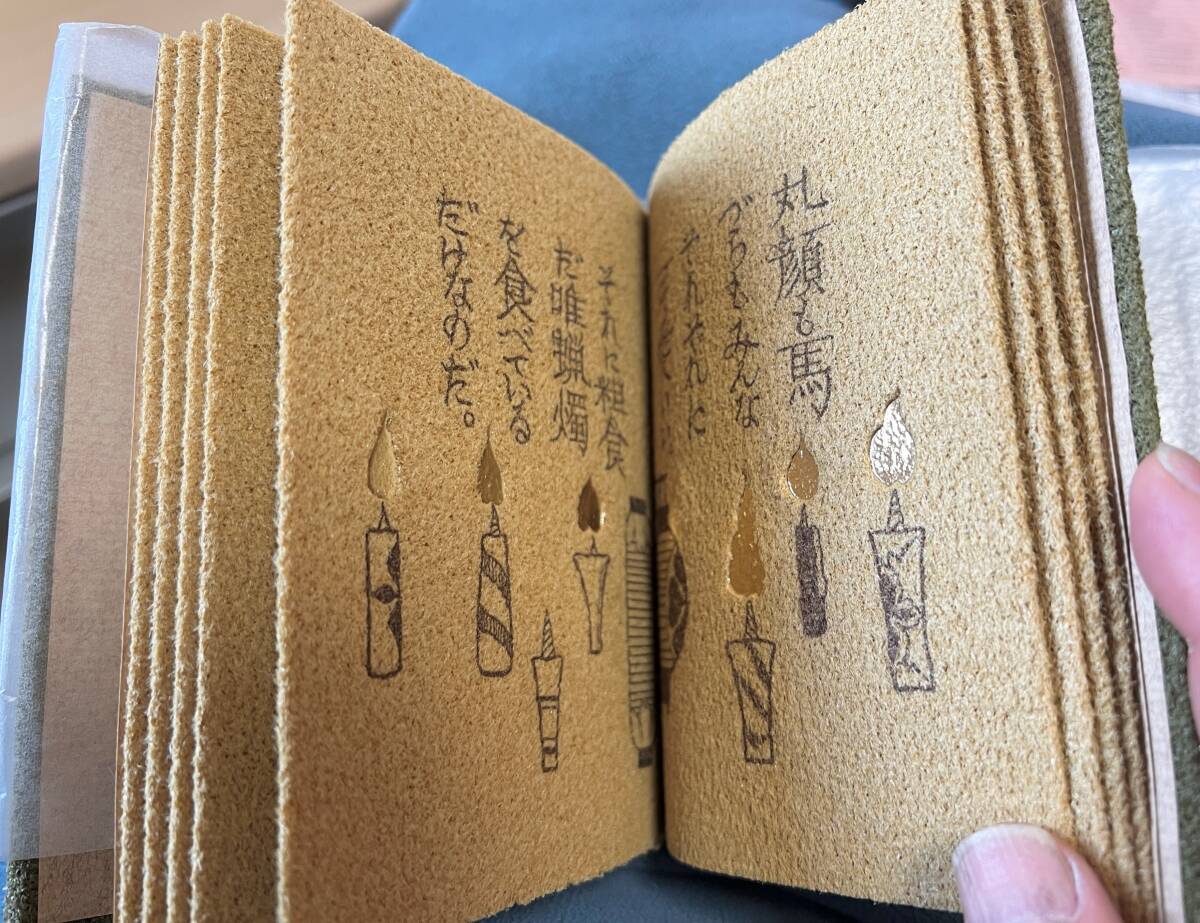 丸顔も馬
づらもみんな
それぞれに
それに粗食
だ唯蝋燭
を食べている
だけなのだ。